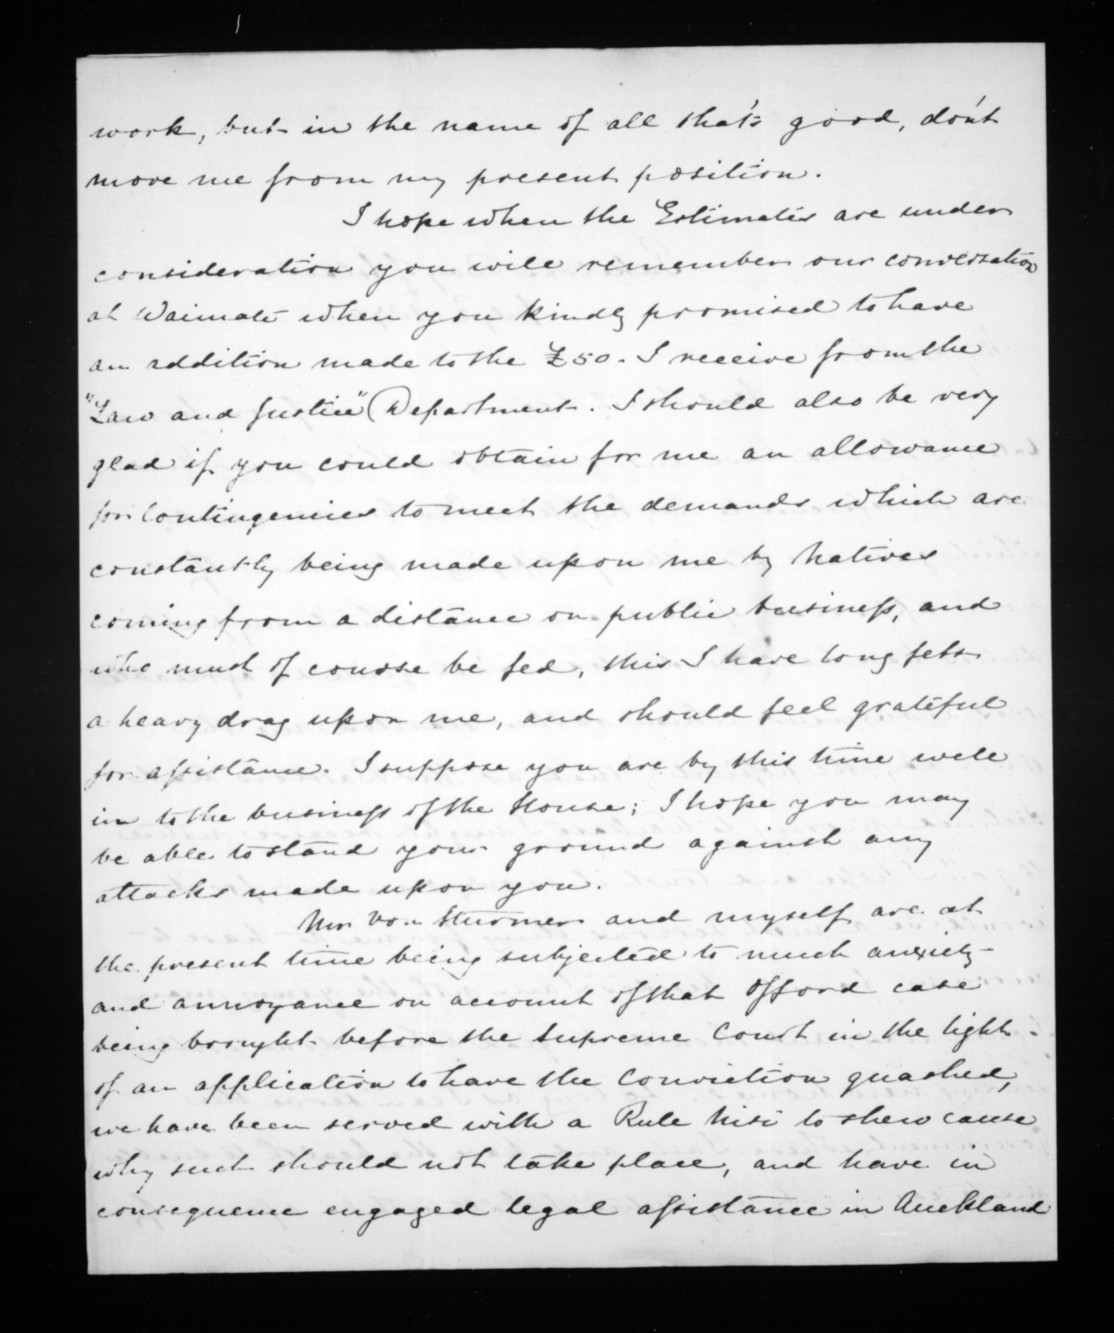 work, but in the name of all that's good, don't
move me from my present position.
I hope when the Estimates are under
consideration you will remember our conversation
at Waimate when you kindly promised to have
an addition made to the £50. I receive from the
"Law and Justice" Department. I should also be very
glad if you could obtain for me an allowance
for Contingencies to meet the demands which are
constantly being made upon me by Natives
coming from a distance on public business, and
who must of course be fed, this I have long felt
a heavy drag upon me, and should feel grateful
for assistance. I suppose you are by this time well
in to the business of the House; I hope you may
be able to stand your ground against any
attacks made upon you.
Von Sturmer and myself are at
the present time being subjected to much anxiety
and annoyance on account of that Offord case
being brought before the Supreme Court in the light
of an application to have the Conviction quashed,
we have been served with a Rule Nisi to shew cause
why such should not take place, and have in
consequence engaged legal assistance in Auckland